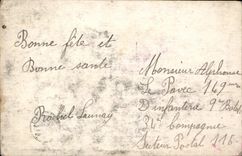 Bonne fête et
Bonne santé
Rachel Launay
Monsieur Alphonse
Le Pavec 149me
D'infanterie 9e Bat
34e Compagnie
Secteur Postal 118